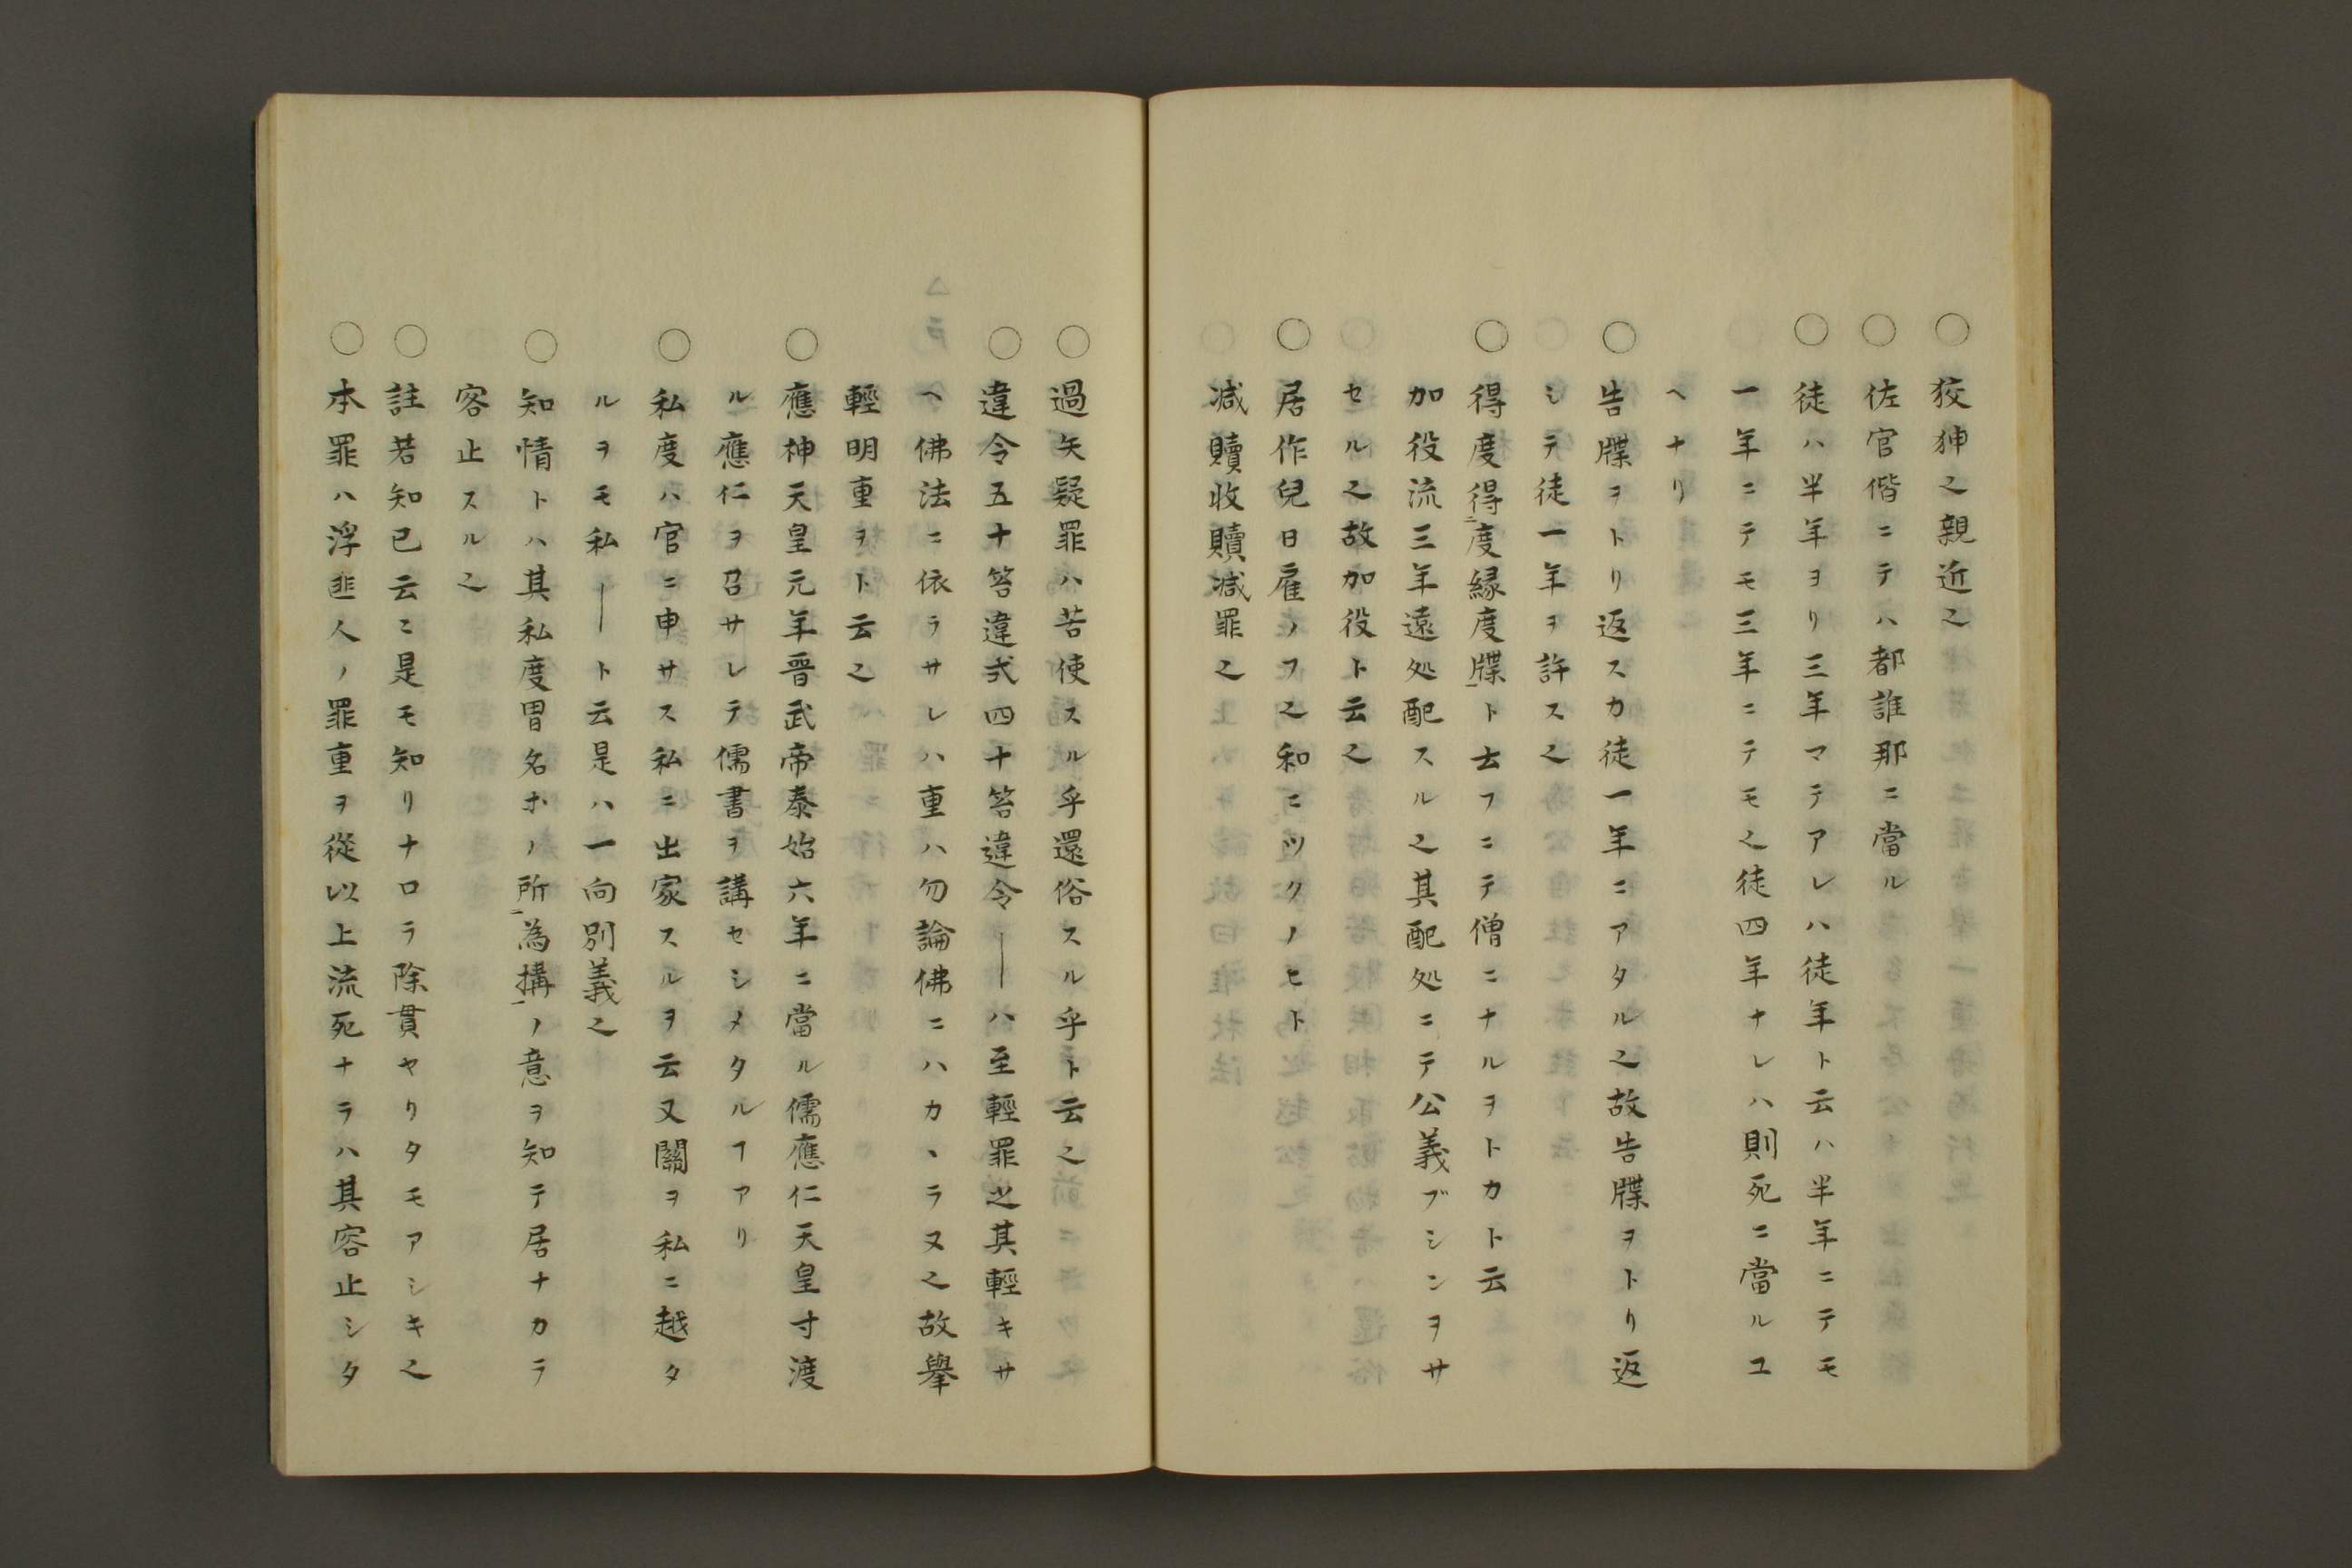 ○狡狎之親近之
○佐官偕ニテハ都誰那ニ當ル
○徒ハ半年ヨリ三年マテアレハ徒年ト云ハ半年ニテモ
一年ニテモ三年ニテモ之徒四年ナレハ則死ニ當ルユ
ヘナリ
○告牒ヲトリ返スカ徒一年ニアタル之故告牒ヲトリ返
シテ徒一年ヲ許ス之
○得度得度縁度牒ト去フニテ僧ニナルヲトカト云
加役流三年遠処配スル之其配処ニテ公義ブシンヲサ
セル之故加役ト云之
○居作兒日雇ノフ之和ニツクノヒト
減贖收贖減罪之
○過矢疑罪ハ苦使スル乎還俗スル乎ト云之
○違令五十笞違式四十笞違令――ハ至輕罪之其輕キサ
ヘ佛法ニ依ラサレハ重ハ勿論佛ニハカヽラヌ之故舉
輕明重ヲト云之
○應神天皇元年晉武帝泰始六年ニ當ル儒應仁天皇寸渡
ル應仁ヲ召サレテ儒書ヲ講セシメタルヿアリ
○私度ハ官ニ申サス私ニ出家スルヲ云又關ヲ私ニ越タ
ルヲモ私――ト云是ハ一向別義之
○知情トハ其私度冒名ホノ所為搆ノ意ヲ知テ居ナカラ
容止スル之
○註若知已云ニ是モ知リナロラ除貫ヤリタモアシキ之
○本罪ハ浮逃人ノ罪重ヲ從以上流死ナラハ其容止シタ